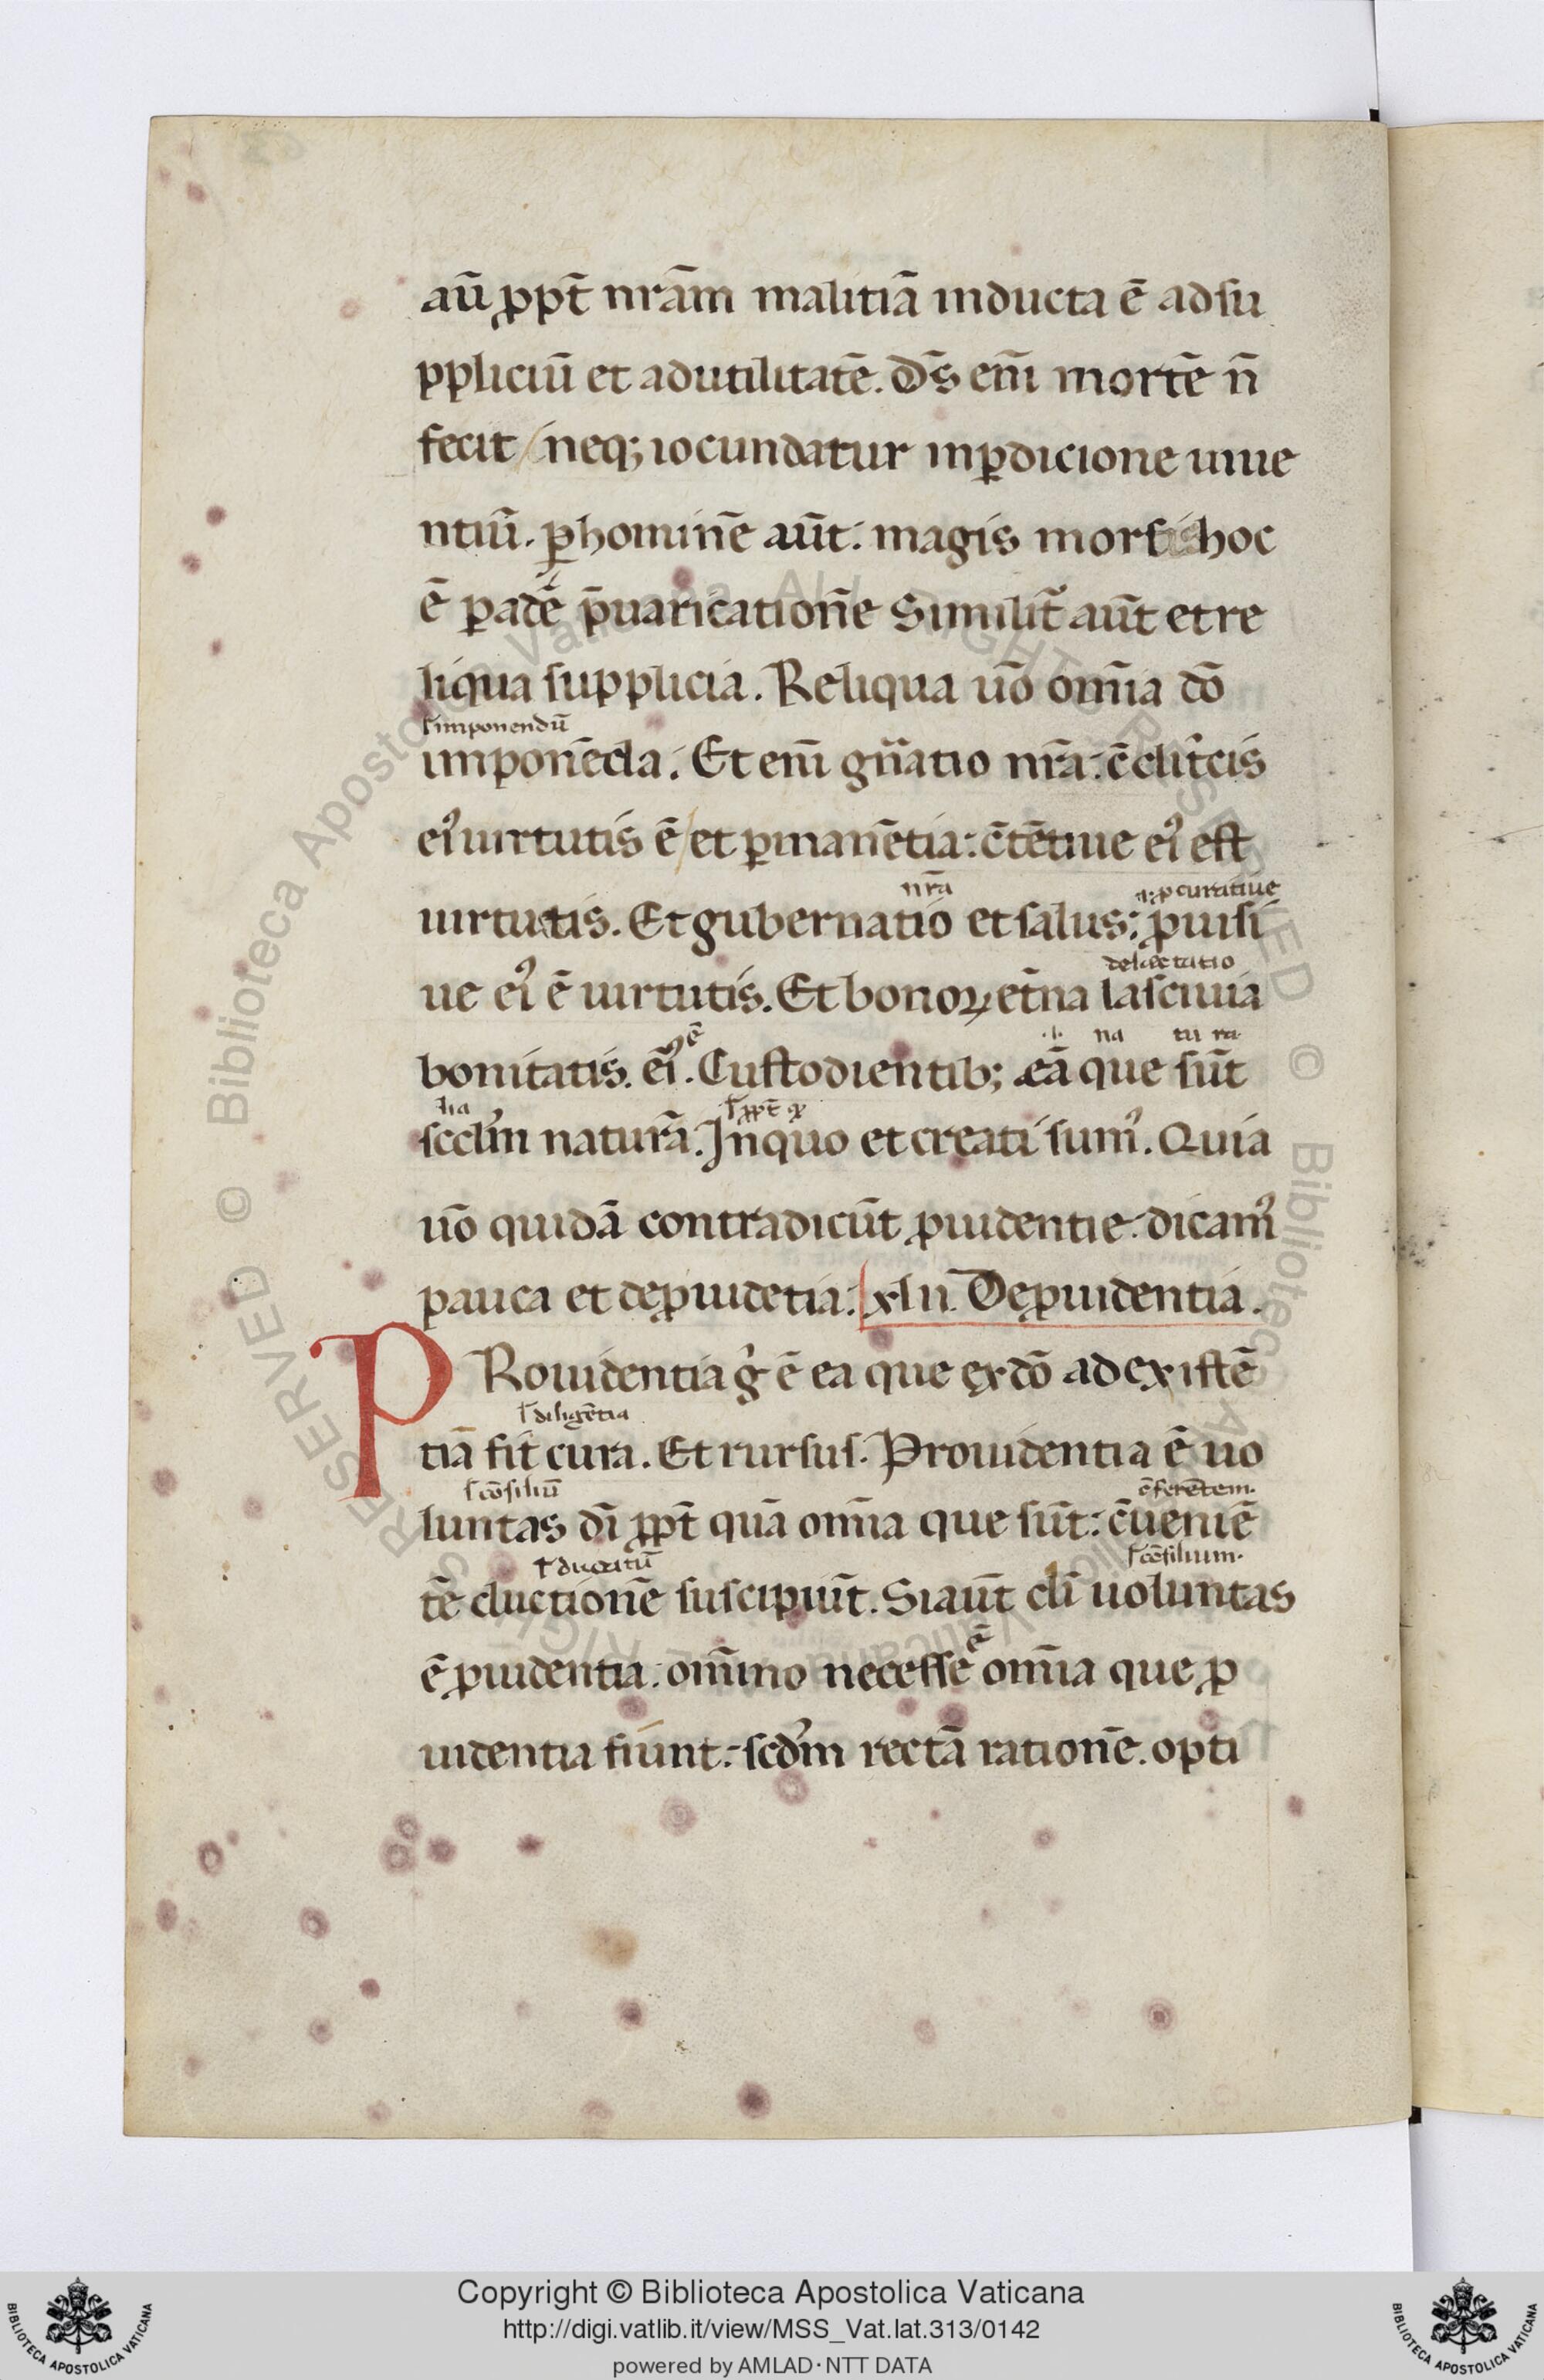 aū ꝓpt̄ nr̄am malitiā inducta ē adsu
ppliciū et adutilitatē. Ds̄ eni̅ mortē n̄
fecit / neq; iocundatur inꝑdicione uiue
ntiū. ꝑhominē aūt. magis mortis hoc
ē ꝑadē p̄uaricationē Similit̄ aūt et re
liqua supplicia. Reliqua uō om̄ia dō
ł imponendū
imponēda. Et eni̅ gn̄atio nr̄a. c̄ditꝰcis
eiꝰ uirtutis ē / et ꝑmanētia. c̄tētiue eiꝰ est
nr̄a ꝓcuratiue
uirtutis. Et gubernatio et salus. ꝓuisi
delectatio
ue eiꝰ ē uirtutis. Et bonoꝝ et̄na lasciuia
ē .i. na tu ra.
bonitatis. eiꝰ. Custodientib; eā que sūt
lia ł ꝓpt̄ qͦ
scd̄m naturā. Inquo et creati sumꝰ. Quia
uō quidā contradicūt ꝓuidentie. dicamꝰ
pauca et deꝓuidētia. xlii. Deꝓuidentia.
PRouidentia gͦ ē ea que exdō ad existē
ł diligētia
tiā fit cura. Et rursus. Prouidentia ē uo
ł cōsiliū c̄ferētem.
luntas di̅ ꝓpt̄ quā om̄ia que sūt. c̄ueniē
ł ducatū ł cōsilium.
tē ductionē suscipiūt. Si aūt di̅ uoluntas
ē
ē ꝓuidentia. om̄ino necesse om̄ia que ꝓ
uidentia fiunt. scd̄m rectā rationē. opti
Copyright © Biblioteca Apostolica Vaticana
http://digi.vatlib.it/view/MSS_Vat.lat.313/0142
powered by AMLAD·NTT DATA
BIBLIOTECA APOSTOLICA VATICANA
BIBLIOTECA APOSTOLICA VATICANA